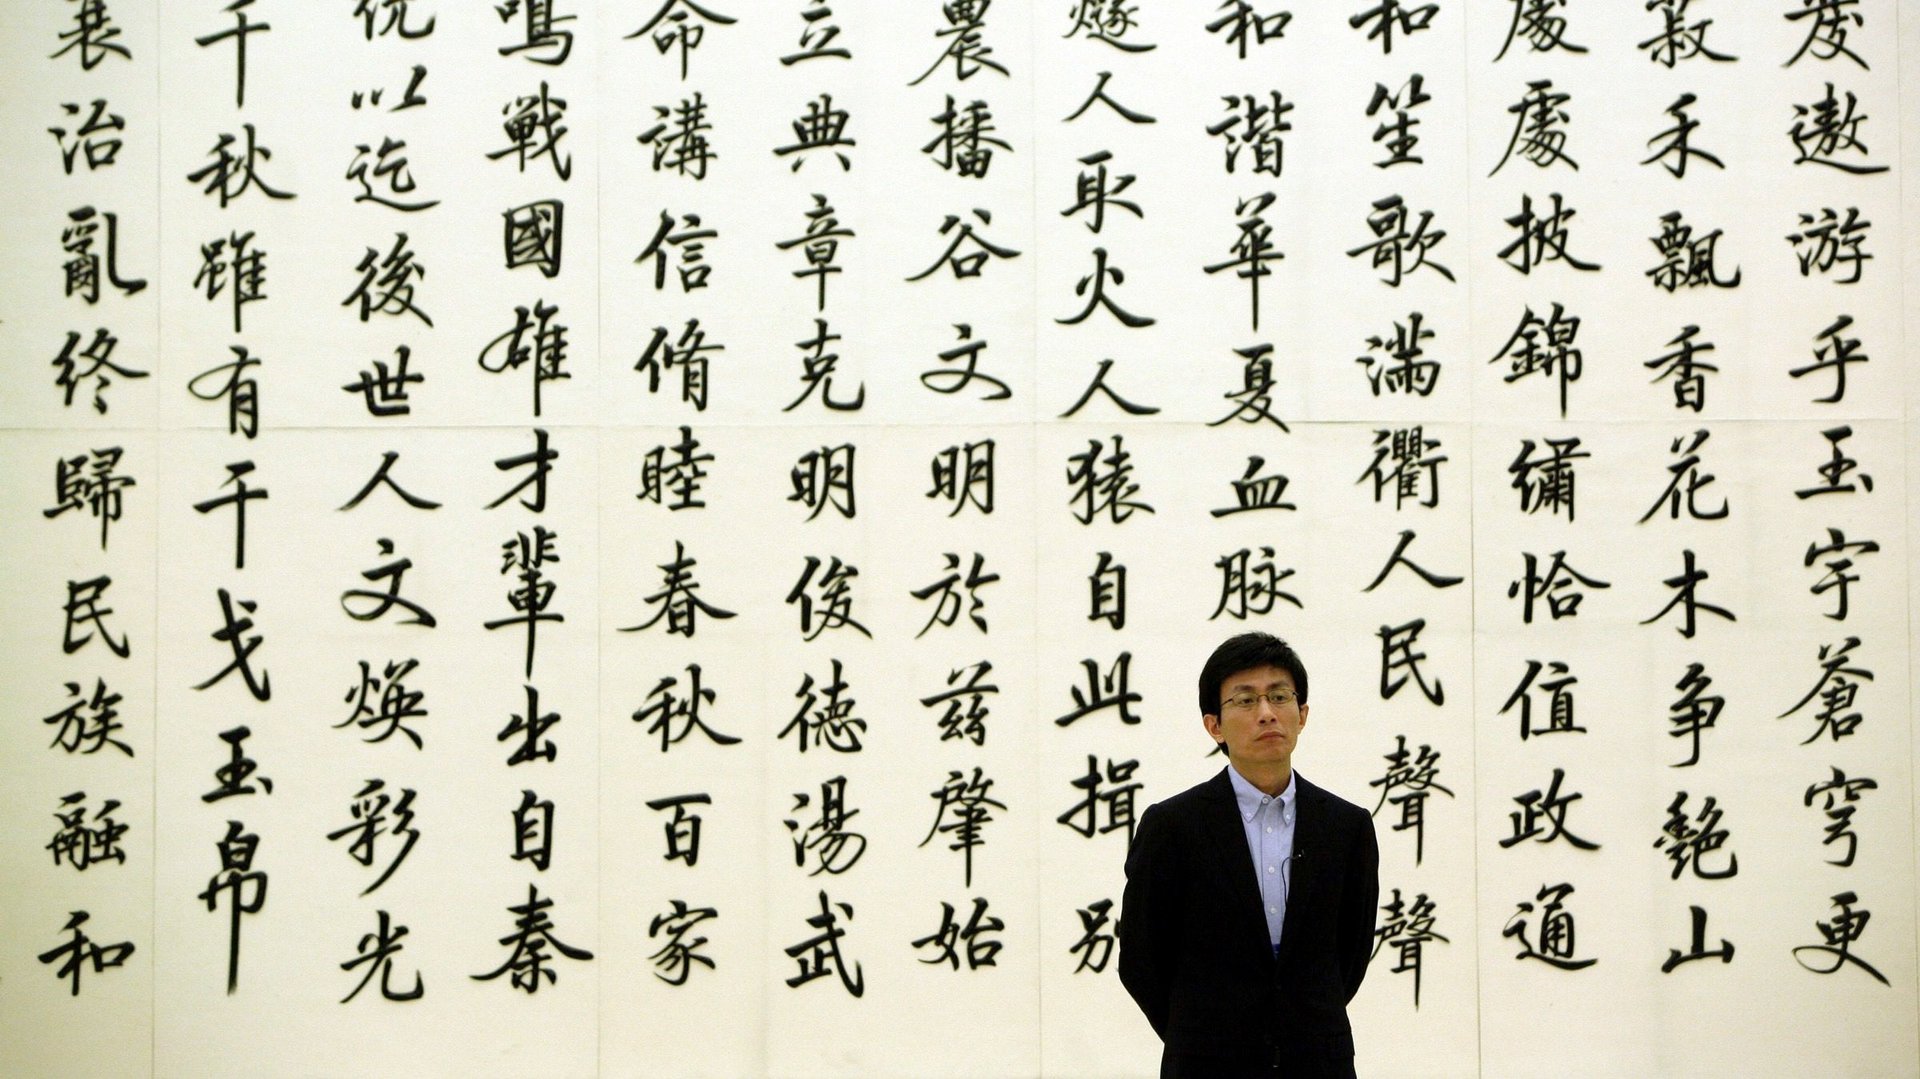 遨游乎玉宇蒼穹更
菽禾飄香花木争艶山
處處披錦繡恰值政通
和笙歌满衢人民聲聲
和諧華夏血脉
人取火人猿自此揖别
農播谷文明於兹肇始
立典章克明俊德湯武
命講信脩睦春秋百家
鳴戰國雄才輩出自秦
以迄後世人文焕彩光
千秋雖有干戈玉帛
治亂终歸民族融和